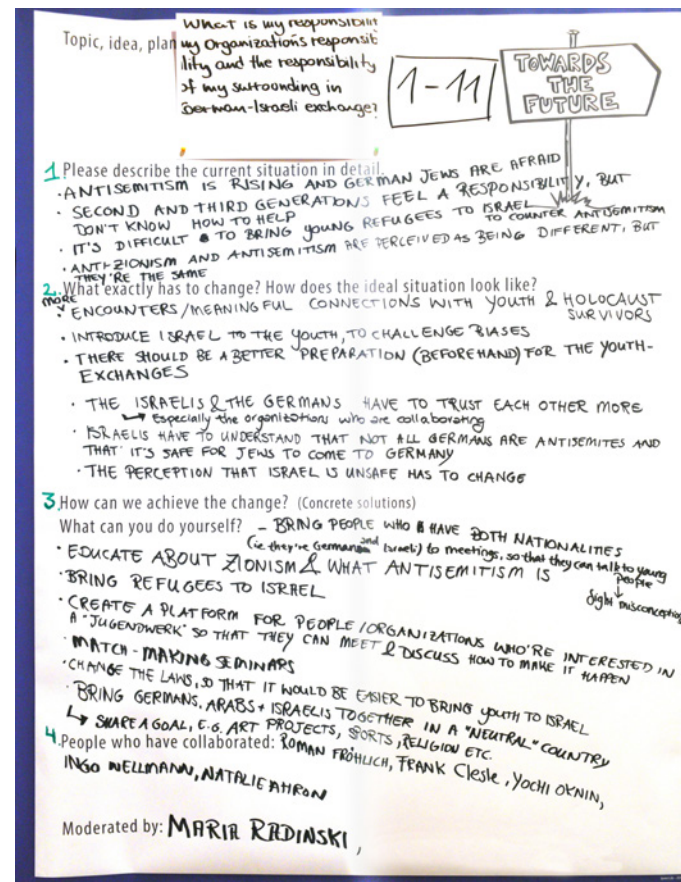 Topic, idea, plan
What is my responsibilit
my Organization's responsibi
lity and the responsibility
of my surrounding in
German-Israeli exchange?
1-11
TOWARDS
THE
FUTURE
1. Please describe the current situation in detail.
· ANTISEMITISM IS RISING AND GERMAN JEWS ARE AFRAID
· SECOND AND THIRD GENERATIONS FEEL A RESPONSIBILITY, BUT
DON'T KNOW HOW TO HELP
TO COUNTER ANTISEMITISM
· IT'S DIFFICULT TO BRING YOUNG REFUGEES TO ISRAEL
· ANTI-ZIONISM AND ANTISEMITISM ARE PERCEIVED AS BEING DIFFERENT, BUT
THEY'RE THE SAME
2. What exactly has to change? How does the ideal situation look like?
MORE
· ENCOUNTERS/MEANINGFUL CONNECTIONS WITH YOUTH & HOLOCAUST
SURVIVORS
· INTRODUCE ISRAEL TO THE YOUTH, TO CHALLENGE BIASES
· THERE SHOULD BE A BETTER PREPARATION (BEFOREHAND) FOR THE YOUTH-
EXCHANGES
· THE ISRAELIS & THE GERMANS HAVE TO TRUST EACH OTHER MORE
→ Especially the organizations who are collaborating
· ISRAELIS HAVE TO UNDERSTAND THAT NOT ALL GERMANS ARE ANTISEMITES AND
THAT IT'S SAFE FOR JEWS TO COME TO GERMANY
· THE PERCEPTION THAT ISRAEL IS UNSAFE HAS TO CHANGE
3. How can we achieve the change? (Concrete solutions)
What can you do yourself? - BRING PEOPLE WHO HAVE BOTH NATIONALITIES
(ie they're German and Israeli) to meetings, so that they can talk to young
people
↓
fight misconception
· EDUCATE ABOUT ZIONISM & WHAT ANTISEMITISM IS
· BRING REFUGEES TO ISRAEL
· CREATE A PLATFORM FOR PEOPLE/ORGANIZATIONS WHO'RE INTERESTED IN
A "JUGENDWERK" SO THAT THEY CAN MEET & DISCUSS HOW TO MAKE IT HAPPEN
· MATCH-MAKING SEMINARS
· CHANGE THE LAWS, SO THAT IT WOULD BE EASIER TO BRING YOUTH TO ISRAEL
· BRING GERMANS, ARABS + ISRAELIS TOGETHER IN A "NEUTRAL" COUNTRY
↳ SHARE A GOAL, E.G. ART PROJECTS, SPORTS, RELIGION ETC.
4. People who have collaborated: ROMAN FRÖHLICH, FRANK Clesle, YOCHI OKNIN,
INGO WELLMANN, NATALIE AHRON
Moderated by: MARIA RADINSKI,